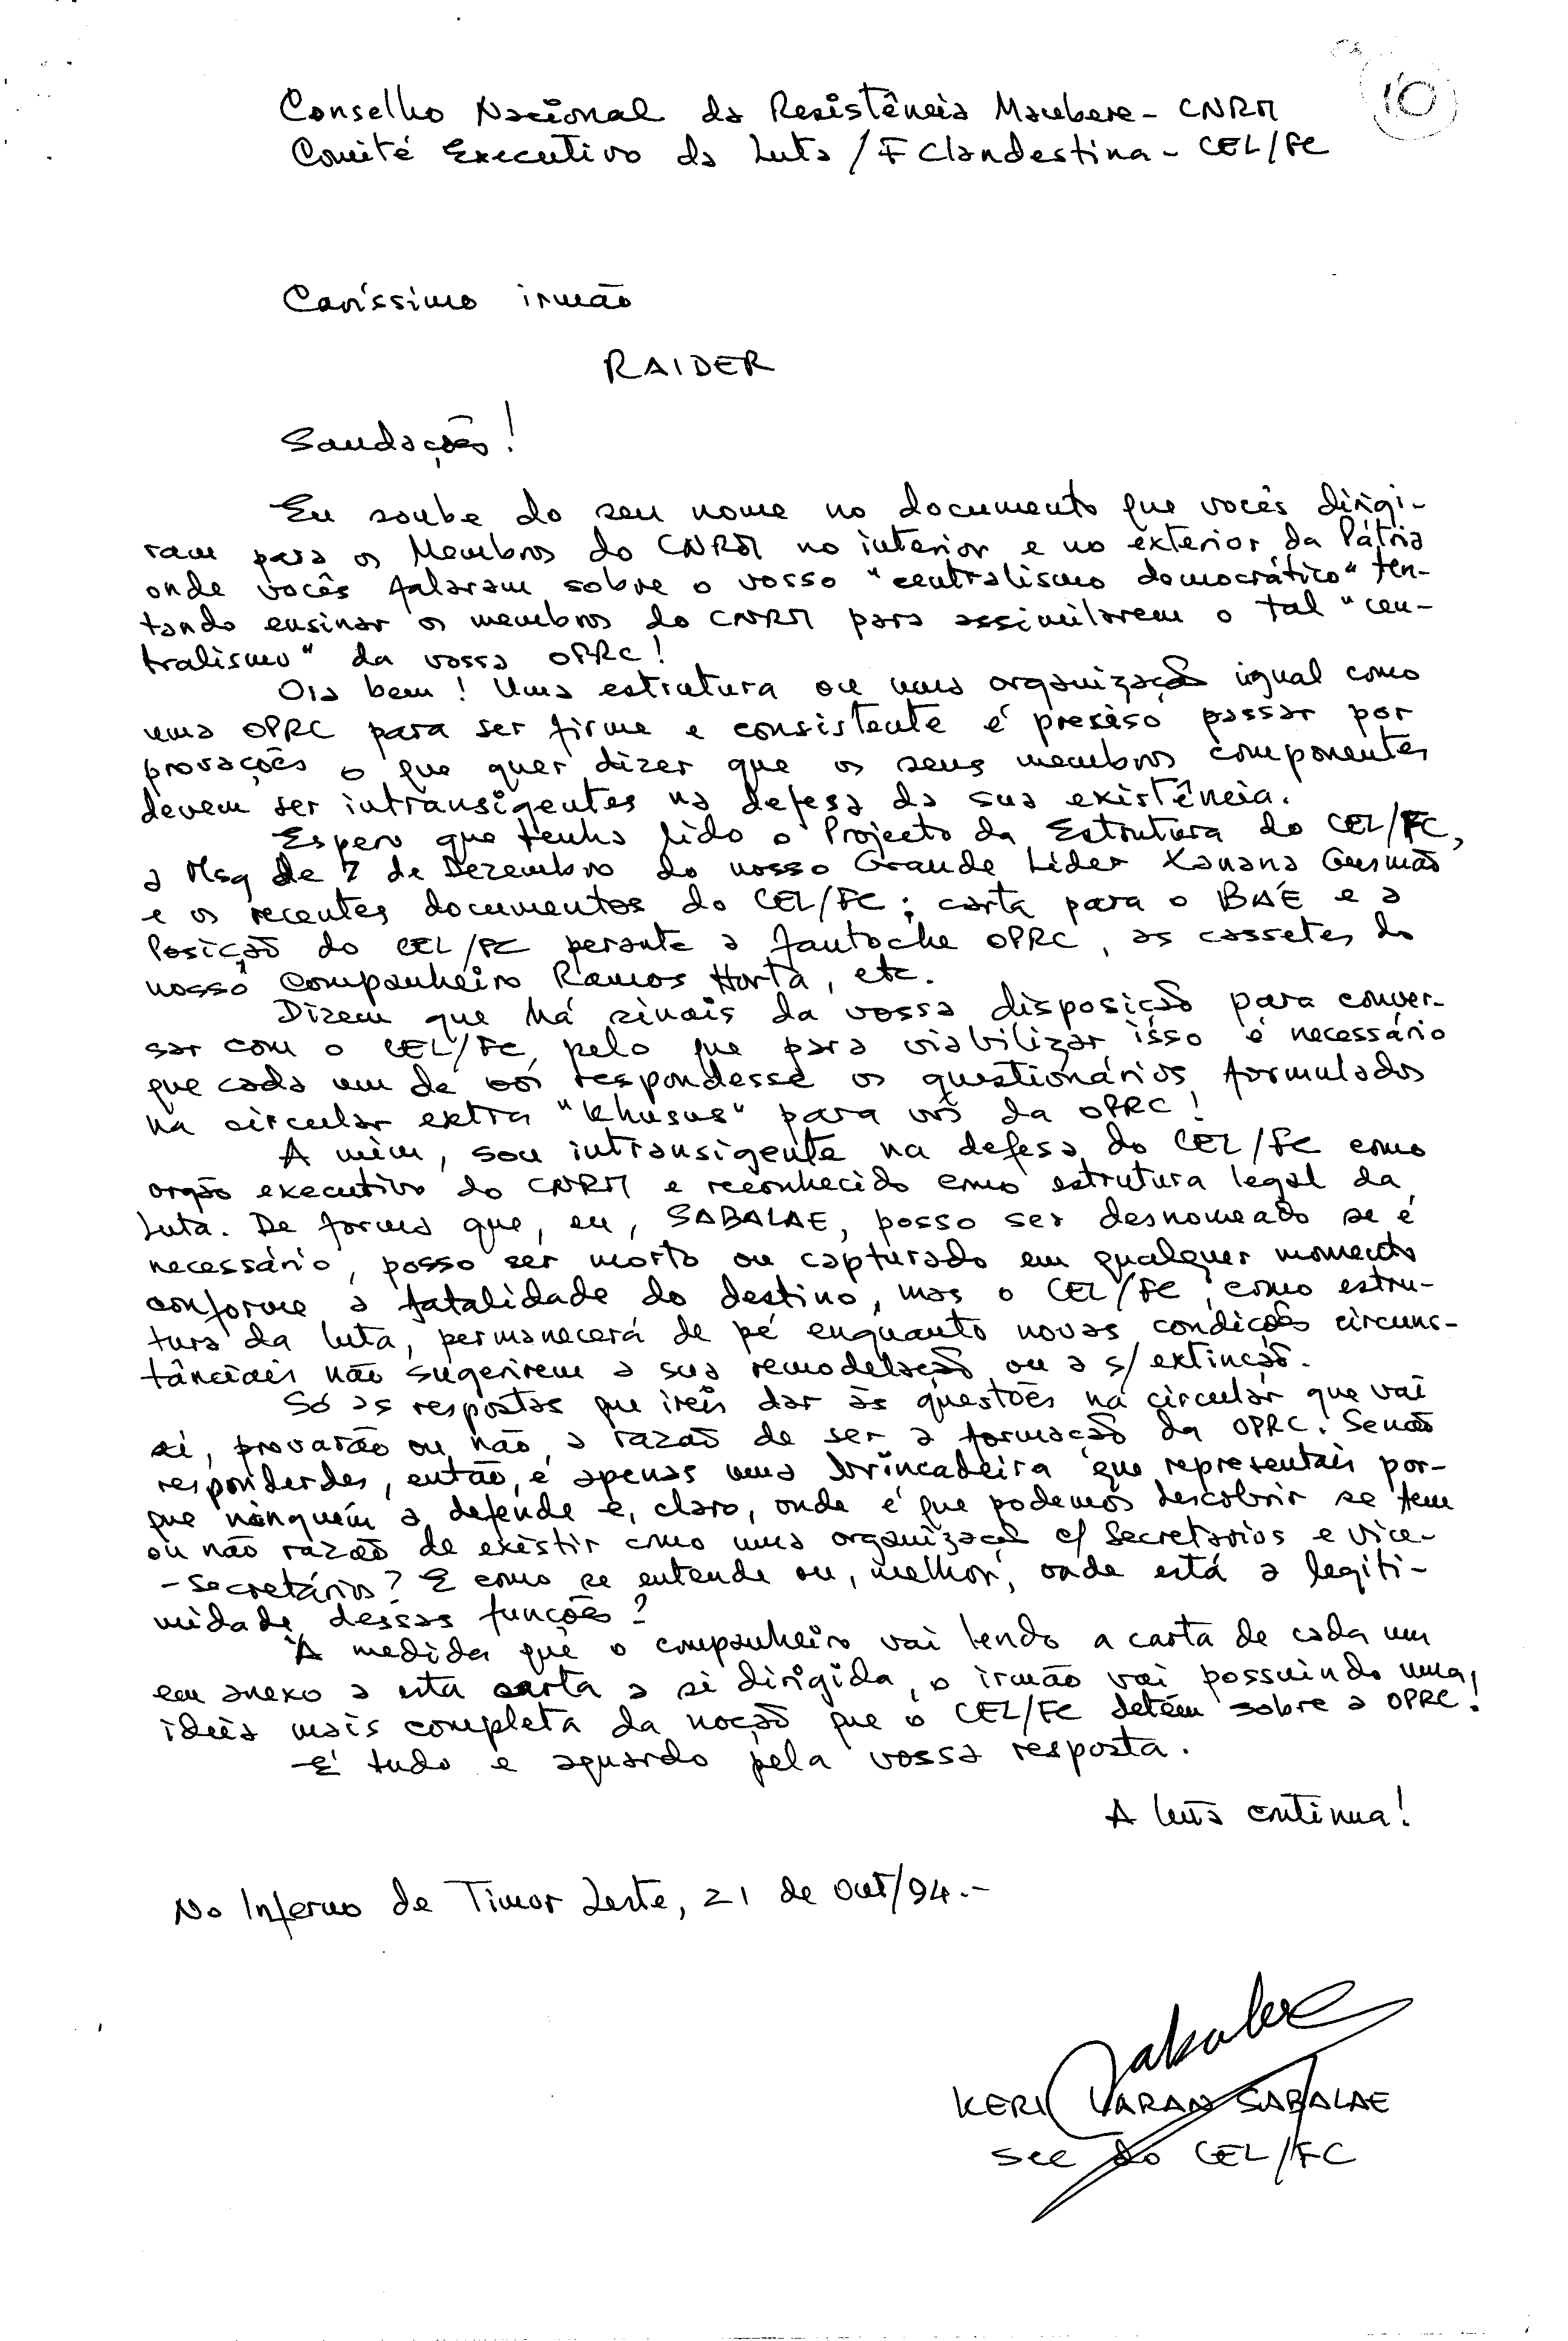 10
Conselho Nacional da Resistência Maubere - CNRM
Comité Executivo da Luta / F Clandestina - CEL/FC
Caríssimo irmão
RAIDER
Saudações!
Eu soube do seu nome no documento que vocês dirigi-
ram para os Membros do CNRM no interior e no exterior da Pátria
onde vocês falaram sobre o vosso "centralismo democrático" ten-
tando ensinar os membros do CNRM para assimilarem o tal "cen-
tralismo" da vossa OPRC!
Ora bem! Uma estrutura ou uma organização igual como
uma OPRC para ser firme e consistente é preciso passar por
provações o que quer dizer que os seus membros componentes
devem ser intransigentes na defesa da sua existência.
Espero que tenha lido o Projecto da Estrutura do CEL/FC,
a Msg de 7 de Dezembro do nosso Grande Líder Xanana Gusmão
e os recentes documentos do CEL/FC; carta para o BAE e a
Posição do CEL/FC perante a fantoche OPRC, as cassetes do
nosso Companheiro Ramos Horta, etc.
Dizem que há sinais da vossa disposição para conver-
sar com o CEL/FC, pelo que para viabilizar isso é necessário
que cada um de vós respondesse os questionários formulados
na circular extra "khusus" para vós da OPRC!
A mim, sou intransigente na defesa do CEL/FC como
orgão executivo do CNRM e reconhecido como estrutura legal da
Luta. De forma que, eu, SABALAE, posso ser desnomeado se é
necessário, posso ser morto ou capturado em qualquer momento
conforme a fatalidade do destino, mas o CEL/FC, como estru-
tura da luta, permanecerá de pé enquanto novas condições circuns-
tânciais não sugerirem a sua remodelação ou a s/ extinção.
Só as respostas que ireis dar às questões na circular que vai
aí, provarão ou não a razão de ser a formação da OPRC. Senão
responderdes, então, é apenas uma brincadeira que representais por-
que ninguém a defende e, claro, onde é que podemos descobrir se tem
ou não razão de existir como uma organização c/ Secretários e Vice-
-Secretários? E como se entende ou, melhor, onde está a legiti-
midade dessas funções?
À medida que o companheiro vai lendo a carta de cada um
em anexo a esta carta a si dirigida, o irmão vai possuindo uma
ideia mais completa da noção que o CEL/FC detém sobre a OPRC!
É tudo e aguardo pela vossa resposta.
A luta continua!
No Inferno de Timor Leste, 21 de Out/94.-
Sabalae
KERI LARAN SABALAE
Sec do CEL/FC